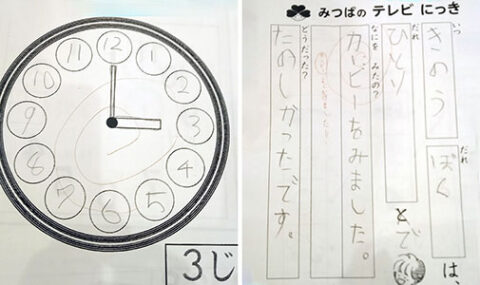 12
1
2
3
4
5
6
7
8
9
10
11
3じ
みつばの テレビ にっき
いつ
きのう
だれ
ぼく
は、
だれ
ひとり
とで
なにを みたの？
カービーをみました。
どうだった？
たのしかったです。